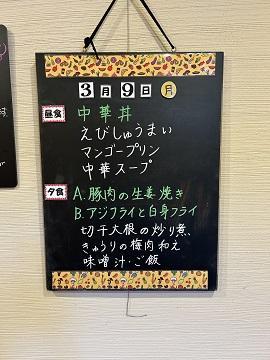 3月9日 月
昼食 中華丼
えびしゅうまい
マンゴープリン
中華スープ
夕食 A.豚肉の生姜焼き
B.アジフライと白身フライ
切干大根の炒り煮、
きゅうりの梅肉和え
味噌汁・ご飯